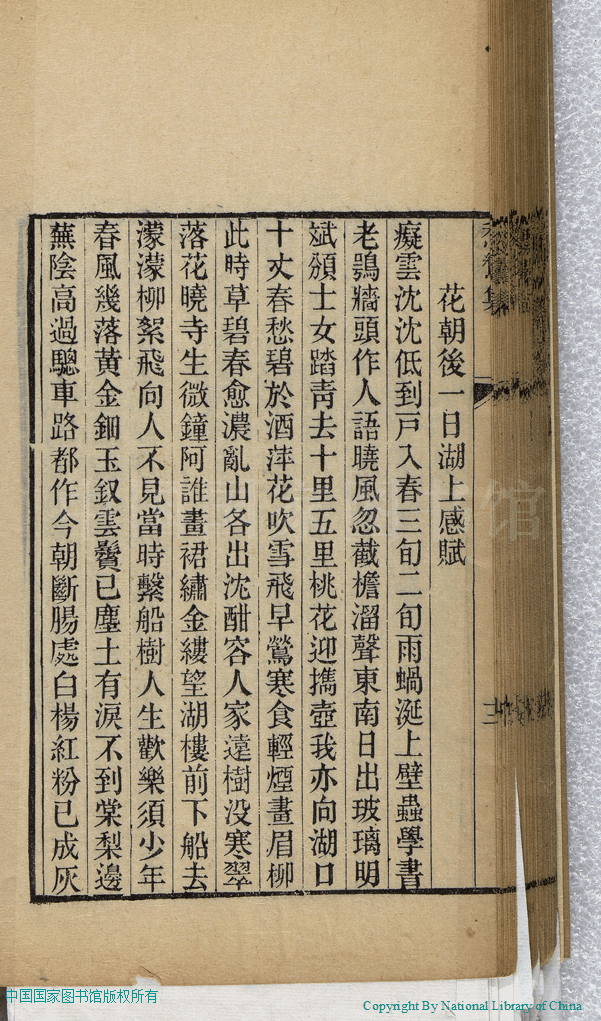 花朝後一日湖上感賦
癡雲沈沈低到戸入春三旬二旬雨蝸涎上壁蟲學書
老鶚牆頭作人語曉風忽截檐溜聲東南日出玻璃明
斌頒士女踏靑去十里五里桃花迎攜壺我亦向湖口
十丈春愁碧於酒萍花吹雪飛早鶯寒食輕煙畫眉柳
此時草碧春愈濃亂山各出沈酣容人家遠樹没寒翠
落花曉寺生微鐘阿誰畫裙繡金縷望湖樓前下船去
濛濛柳絮飛向人不見當時繫船樹人生歡樂須少年
春風幾落黄金鈿玉釵雲鬢已塵土有淚不到棠梨邊
蕪陰高過驄車路都作今朝斷腸處白楊紅粉已成灰
中国国家图书馆版权所有
Copyright By National Library of China